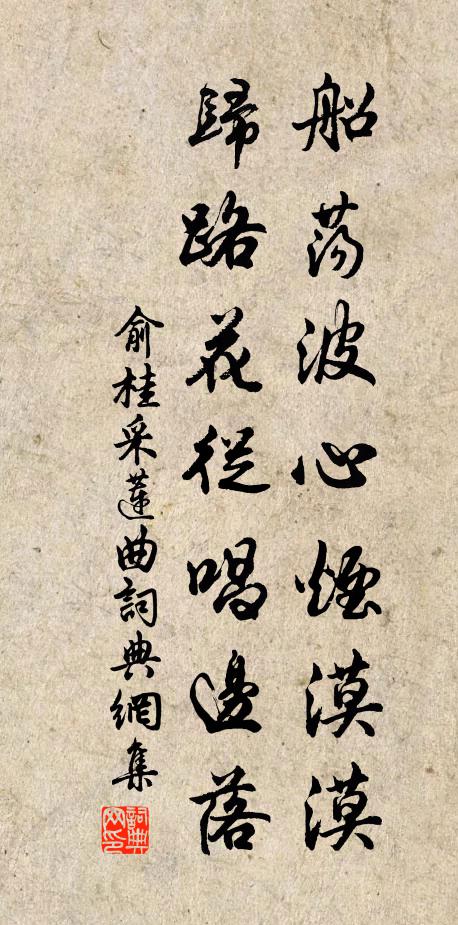 船荡波心煙漠漠
歸路花從唱邊落
俞桂采蓮曲詞典網集
詞典网印